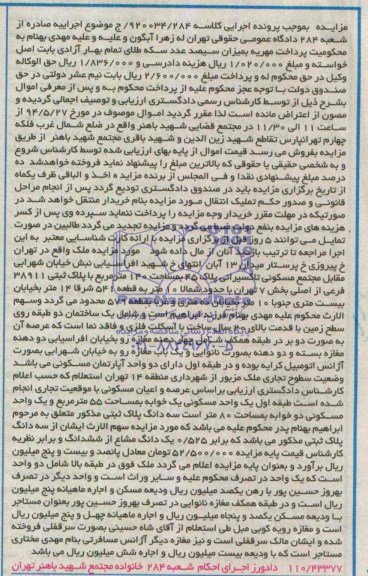 مزایـــده بموجب پرونده اجرایی کلاسه ۹۲۰۰۳۴/۲۸۴/ج موضوع اجراییه صادره از
شعبه ۲۸۴ دادگاه عمومی حقوقی تهران له زهرا آبگون و علیه و علیه مهدی بهنام به
محکومیت پرداخت مهریه بمیزان سیصد عدد سکه طلای تمام بهار آزادی بابت اصل
خواسته و مبلغ ۱/۰۲۰/۰۰۰ ریال هزینه دادرسی و ۱/۸۳۶/۰۰۰ ریال حق الوکاله
وکیل در حق محکوم له و پرداخت مبلغ ۲/۶۰۰/۰۰۰ ریال بابت نیم عشر دولتی در حق
صندوق دولت با توجه عجز محکوم علیه از پرداخت محکوم به و پس از معرفی اموال
بشرح ذیل از توسط کارشناس رسمی دادگستری ارزیابی و توصیف اجمالی گردیده و
مصون از اعتراض مانده است لذا مقرر گردید اموال موصوف در مورخ ۹۴/۵/۲۷ از
ساعت ۱۱ الی ۱۱/۳۰ در مجتمع قضایی شهید باهنر واقع در ضلع شمال غرب فلکه
چهارم تهرانپارس تقاطع شهید زین الدین و شهید باقری مجتمع شهید باهنر از طریق
مزایده بفروش می رسد قیمت اموال از پایه بهای ارزیابی شده توسط کارشناس شروع
و به شخصی حقیقی یا حقوقی که بالاترین مبلغ را پیشنهاد نماید فروخته خواهدشد ده
درصد مبلغ پیشنهادی نقدا و فی المجلس از برنده مزایده اخذ و الباقی ظرف یکماه
از تاریخ برگزاری مزایده باید در صندوق دادگستری تودیع گردد پس از انجام مراحل
قانونی و صدور حکم تملیک انتقال مورد مزایده بنام خریدار منتقل خواهد شد در
صورتیکه در مهلت مقرر خریدار وجه مزایده را پرداخت ننماید سپرده وی پس از کسر
هزینه های مزایده بنفع دولت ضبط می گردد و مزایده تجدید می گردد طالبین در صورت
تمایل می توانند ۵ روز قبل از برگزاری مزایده با ارائه کارت شناسایی معتبر به این
اجرا مراجعه تا ترتیب بازدید آنان از مال داده شود مورد مزایده ملک واقع در تهران
خ پیروزی خ پرستار میدان ۱۳ آبان انتهای خ شهید افراسیابی نبش خیابان شهرابی
مقابل مجتمع مسکونی تاکسیرانی پلاک ۲۵ بمساحت ۱۴۰ مترمربع با پلاک ثبتی ۳۸۹۱۱
فرعی از اصلی بخش ۷ تهران با حدود شمالا ۱۰ متر به قطعه ۵۴۱ شرقا ۱۴ متر بخیابان
بیست متری جنوبا ۱۰ متر بخیابان ده متری و غربا بقطعه ۵۷۰ محدود می گردد وسهم
الارث محکوم علیه مهدی بهنام فرزند ابراهیم است و شامل یک ساختمان دو طبقه روی
سطح زمین با قدمت بالای ۳۰ سال ساخت با اسکلت فلزی و فاقد نما است که عرصه آن
به صورت دو بر در طبقه همکف شامل چهار دهنه مغازه رو بخیابان افراسیابی دو دهنه
مغازه بسته و دو دهنه بصورت نانوایی و یک باب مغازه رو به خیابان شهرابی بصورت
آژانس اتومبیل کرایه بوده و در طبقه اول دارای دو واحد آپارتمان مسکونی می باشد
وضعیت سطوح تجاری ملک مزبور از شهرداری منطقه ۱۴ تهران استعلام که حسب اعلام
کارشناس دادگستری ارزیابی براساس عرصه و اعیان مسکونی با موقعیت تجاری انجام
شده است طبقه اول یک واحد مسکونی یک خوابه بمساحت ۵۵ مترمربع و یک واحد
مسکونی دو خوابه بمساحت ۸۰ متر است سه دانگ پلاک ثبتی مذکور متعلق به مرحوم
ابراهیم بهنام پدر محکوم علیه می باشد که مورد مزایده سهم الارث ایشان از سه دانگ
پلاک ثبتی مذکور می باشد که برابر ۰/۵۲۵ یک دانگ مشاع از ششدانگ و برابر نظریه
کارشناس قیمت پایه مزایده ۵۲/۵۰۰/۰۰۰ تومان معادل پانصد و بیست و پنج میلیون
ریال برآورد و بعنوان پایه مزایده اعلام می گردد ملک فوق در طبقه بالا شامل دو واحد
است که یک واحد در تصرف محکوم علیه و سایر وراث است و واحد دیگر در تصرف
بهروز حسین پور با رهن یکصد میلیون ریال ودیعه مسکن و اجاره ماهیانه پنج میلیون
ریال است و در طبقه همکف مغازه نانوایی در تصرف بهروز حسین پور بعنوان مستاجر
با ودیعه مسکن یکصد و پنجاه میلیون ریال و اجاره ماهیانه چهل و پنج میلیون ریال
است و مغازه رویه کوبی مبل طی استعلام از آقای شاه حسینی بصورت سرقفلی فروخته
شده و ایشان مالک سرقفلی است و نیز مغازه دیگر آژانس مسافرتی بنام مهدی مختاری
مستاجر است که با ودیعه بیست میلیون ریال و اجاره شش میلیون ریال می باشد
۱۱۰/۴۳۳۷۷ دادورز اجرای احکام شعبه ۲۸۴ خانواده مجتمع شهید باهنر تهران